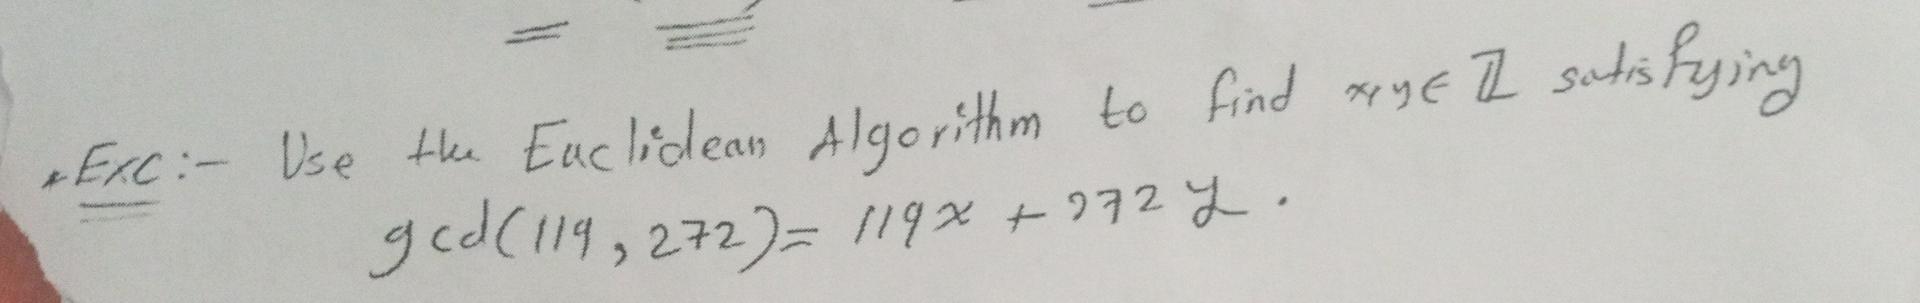 * Exc :- Use the Euclidean Algorithm to find x, y ∈ ℤ satisfying
gcd(119, 272) = 119x + 272y.